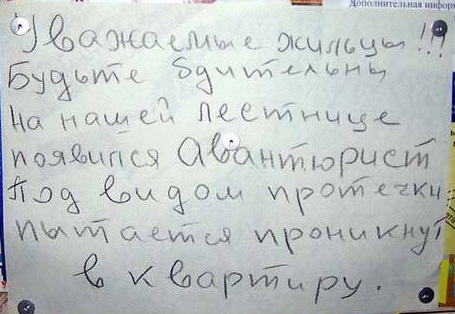 Дополнительная инфор
Уважаемые жильцы!!!
Будьте бдительны
На нашей лестнице
появился Авантюрист
Под видом протечки
пытается проникнут
в квартиру.